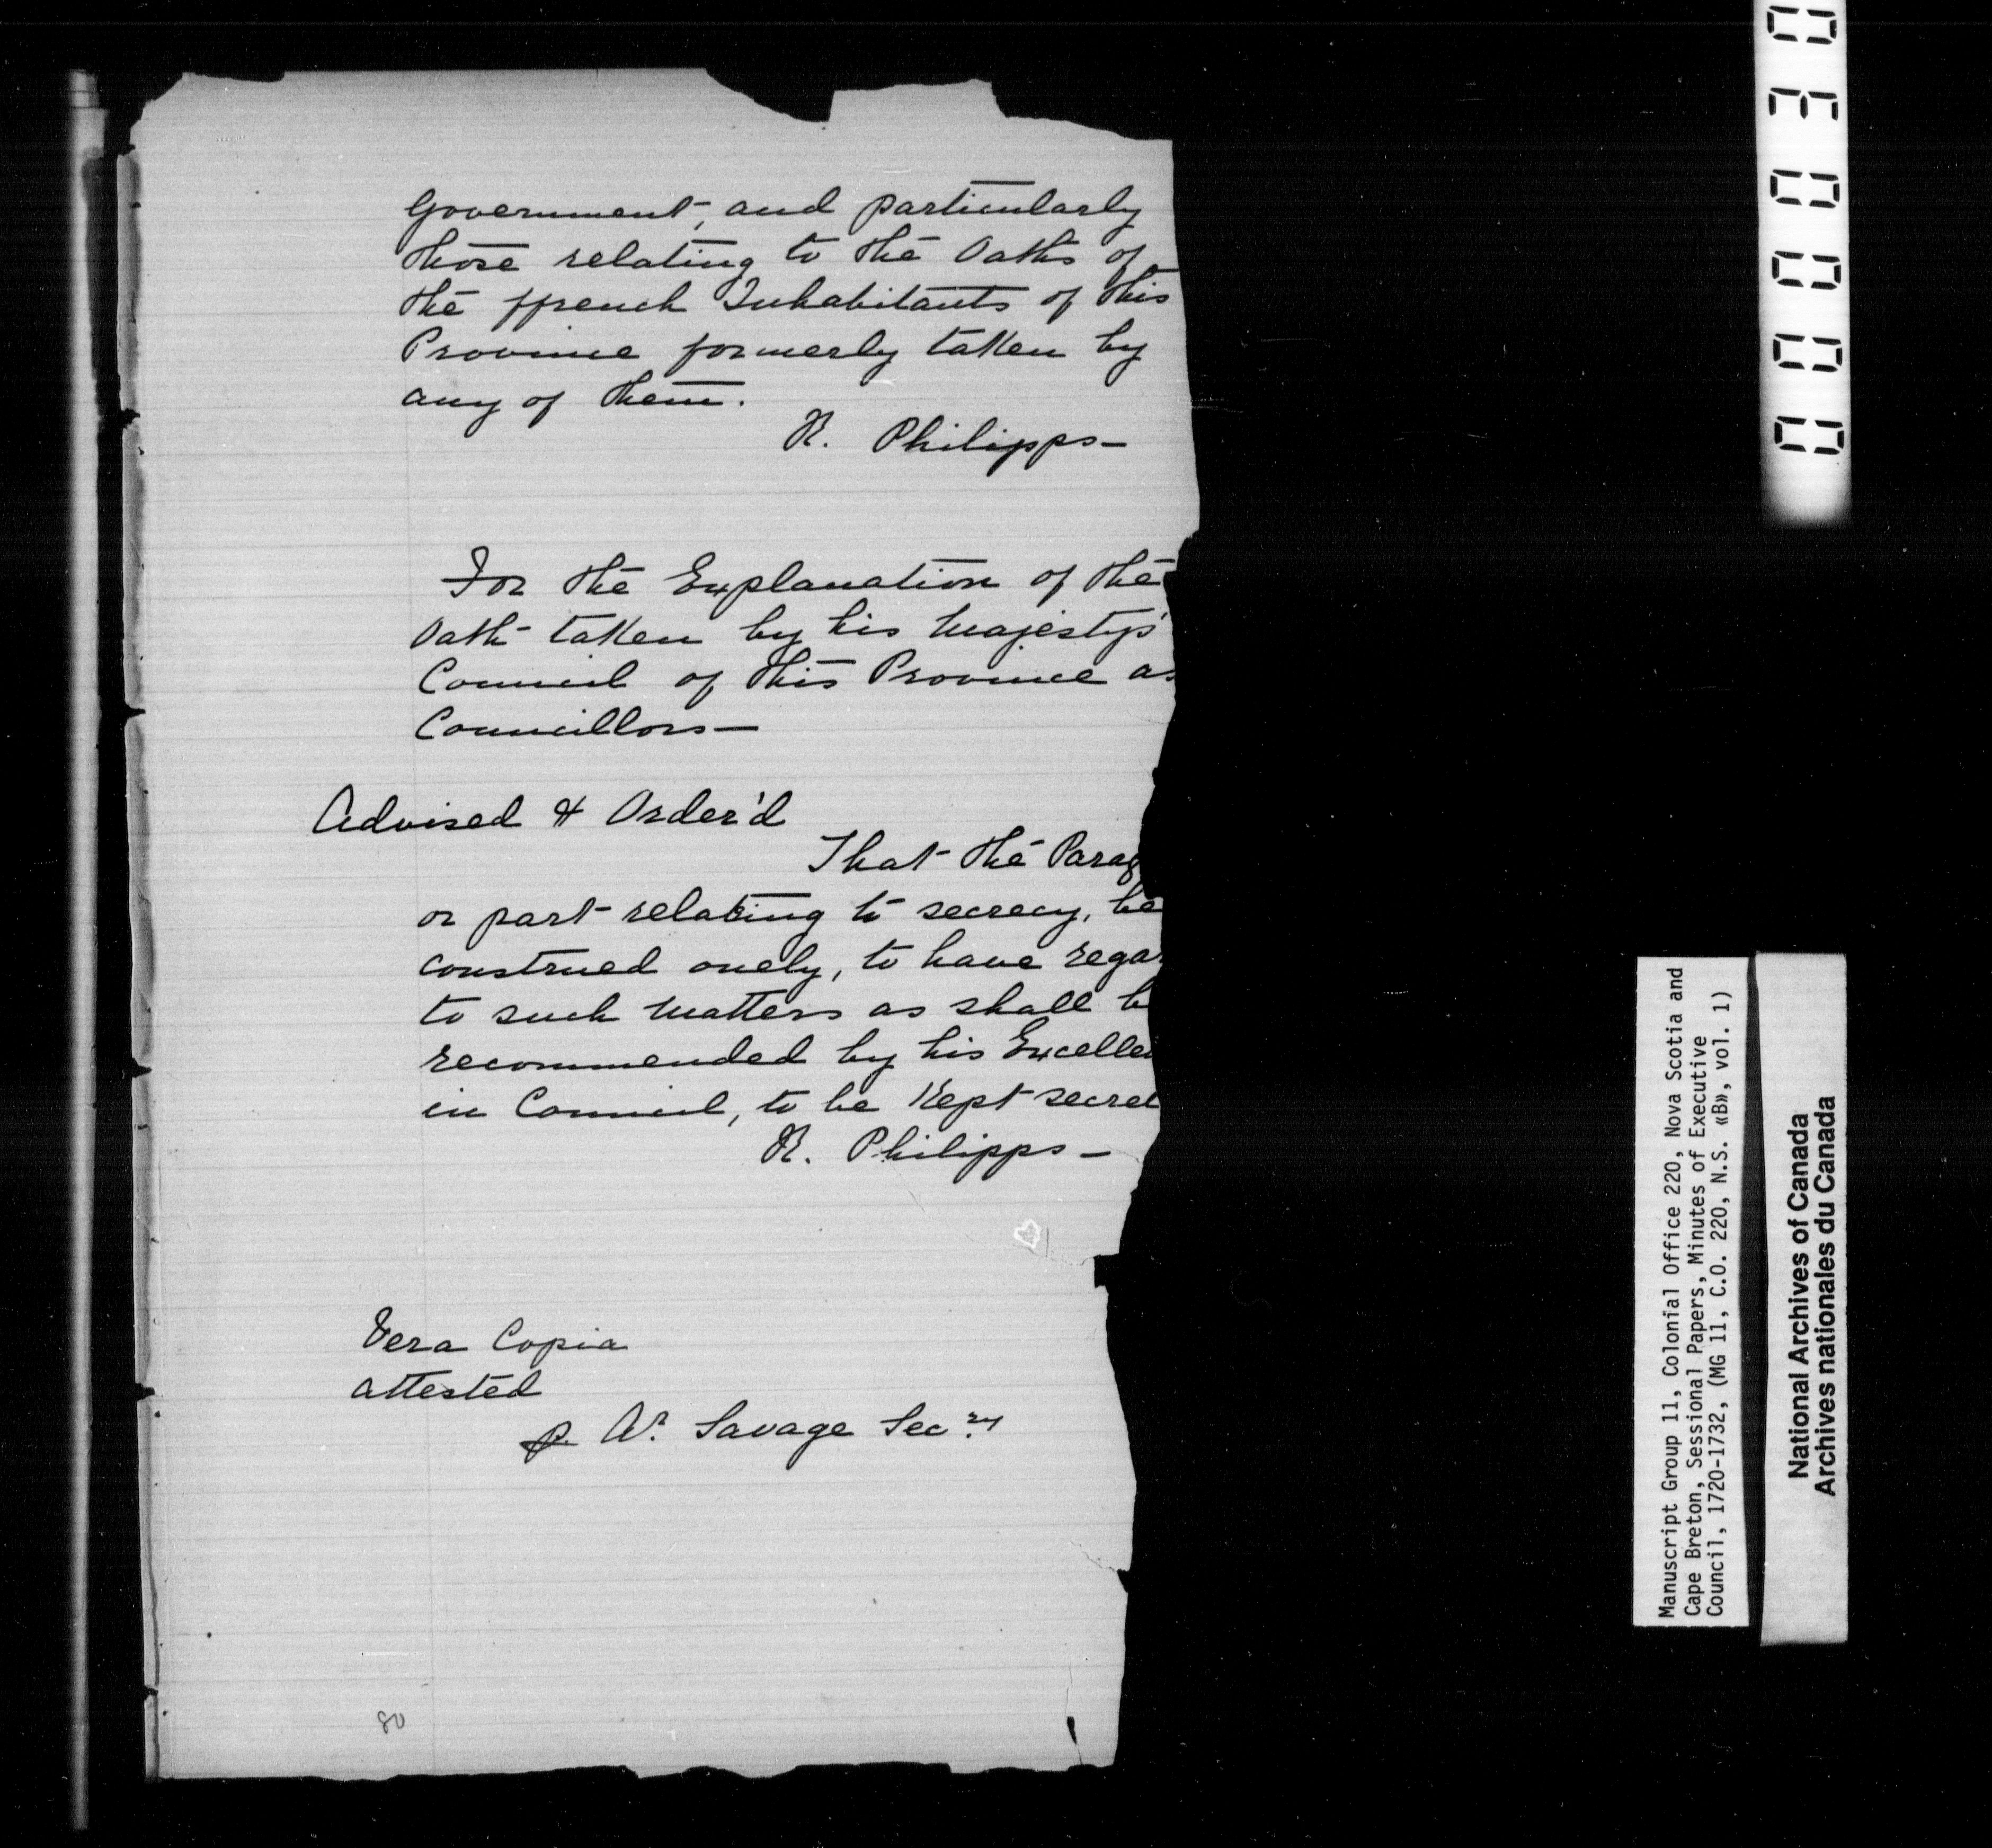 Government, and particularly
those relating to the Oaths of
the ffrench Inhabitants of this
Province formerly taken by
any of them.
R. Philipps—
For the Explanation of the
Oath taken by his Majestys'
Council of this Province as
Councillors—
Advised & Order'd
That the Parag
or part relating to secrecy, be
construed onely, to have regar
to such matters as shall b
recommended by his Excellen
in Council, to be Kept secret
R. Philipps—
Vera Copia
attested
p. Ar. Savage Secry
80
Manuscript Group 11, Colonial Office 220, Nova Scotia and
Cape Breton, Sessional Papers, Minutes of Executive
Council, 1720-1732, (MG 11, C.O. 220, N.S. «B», vol. 1)
National Archives of Canada
Archives nationales du Canada